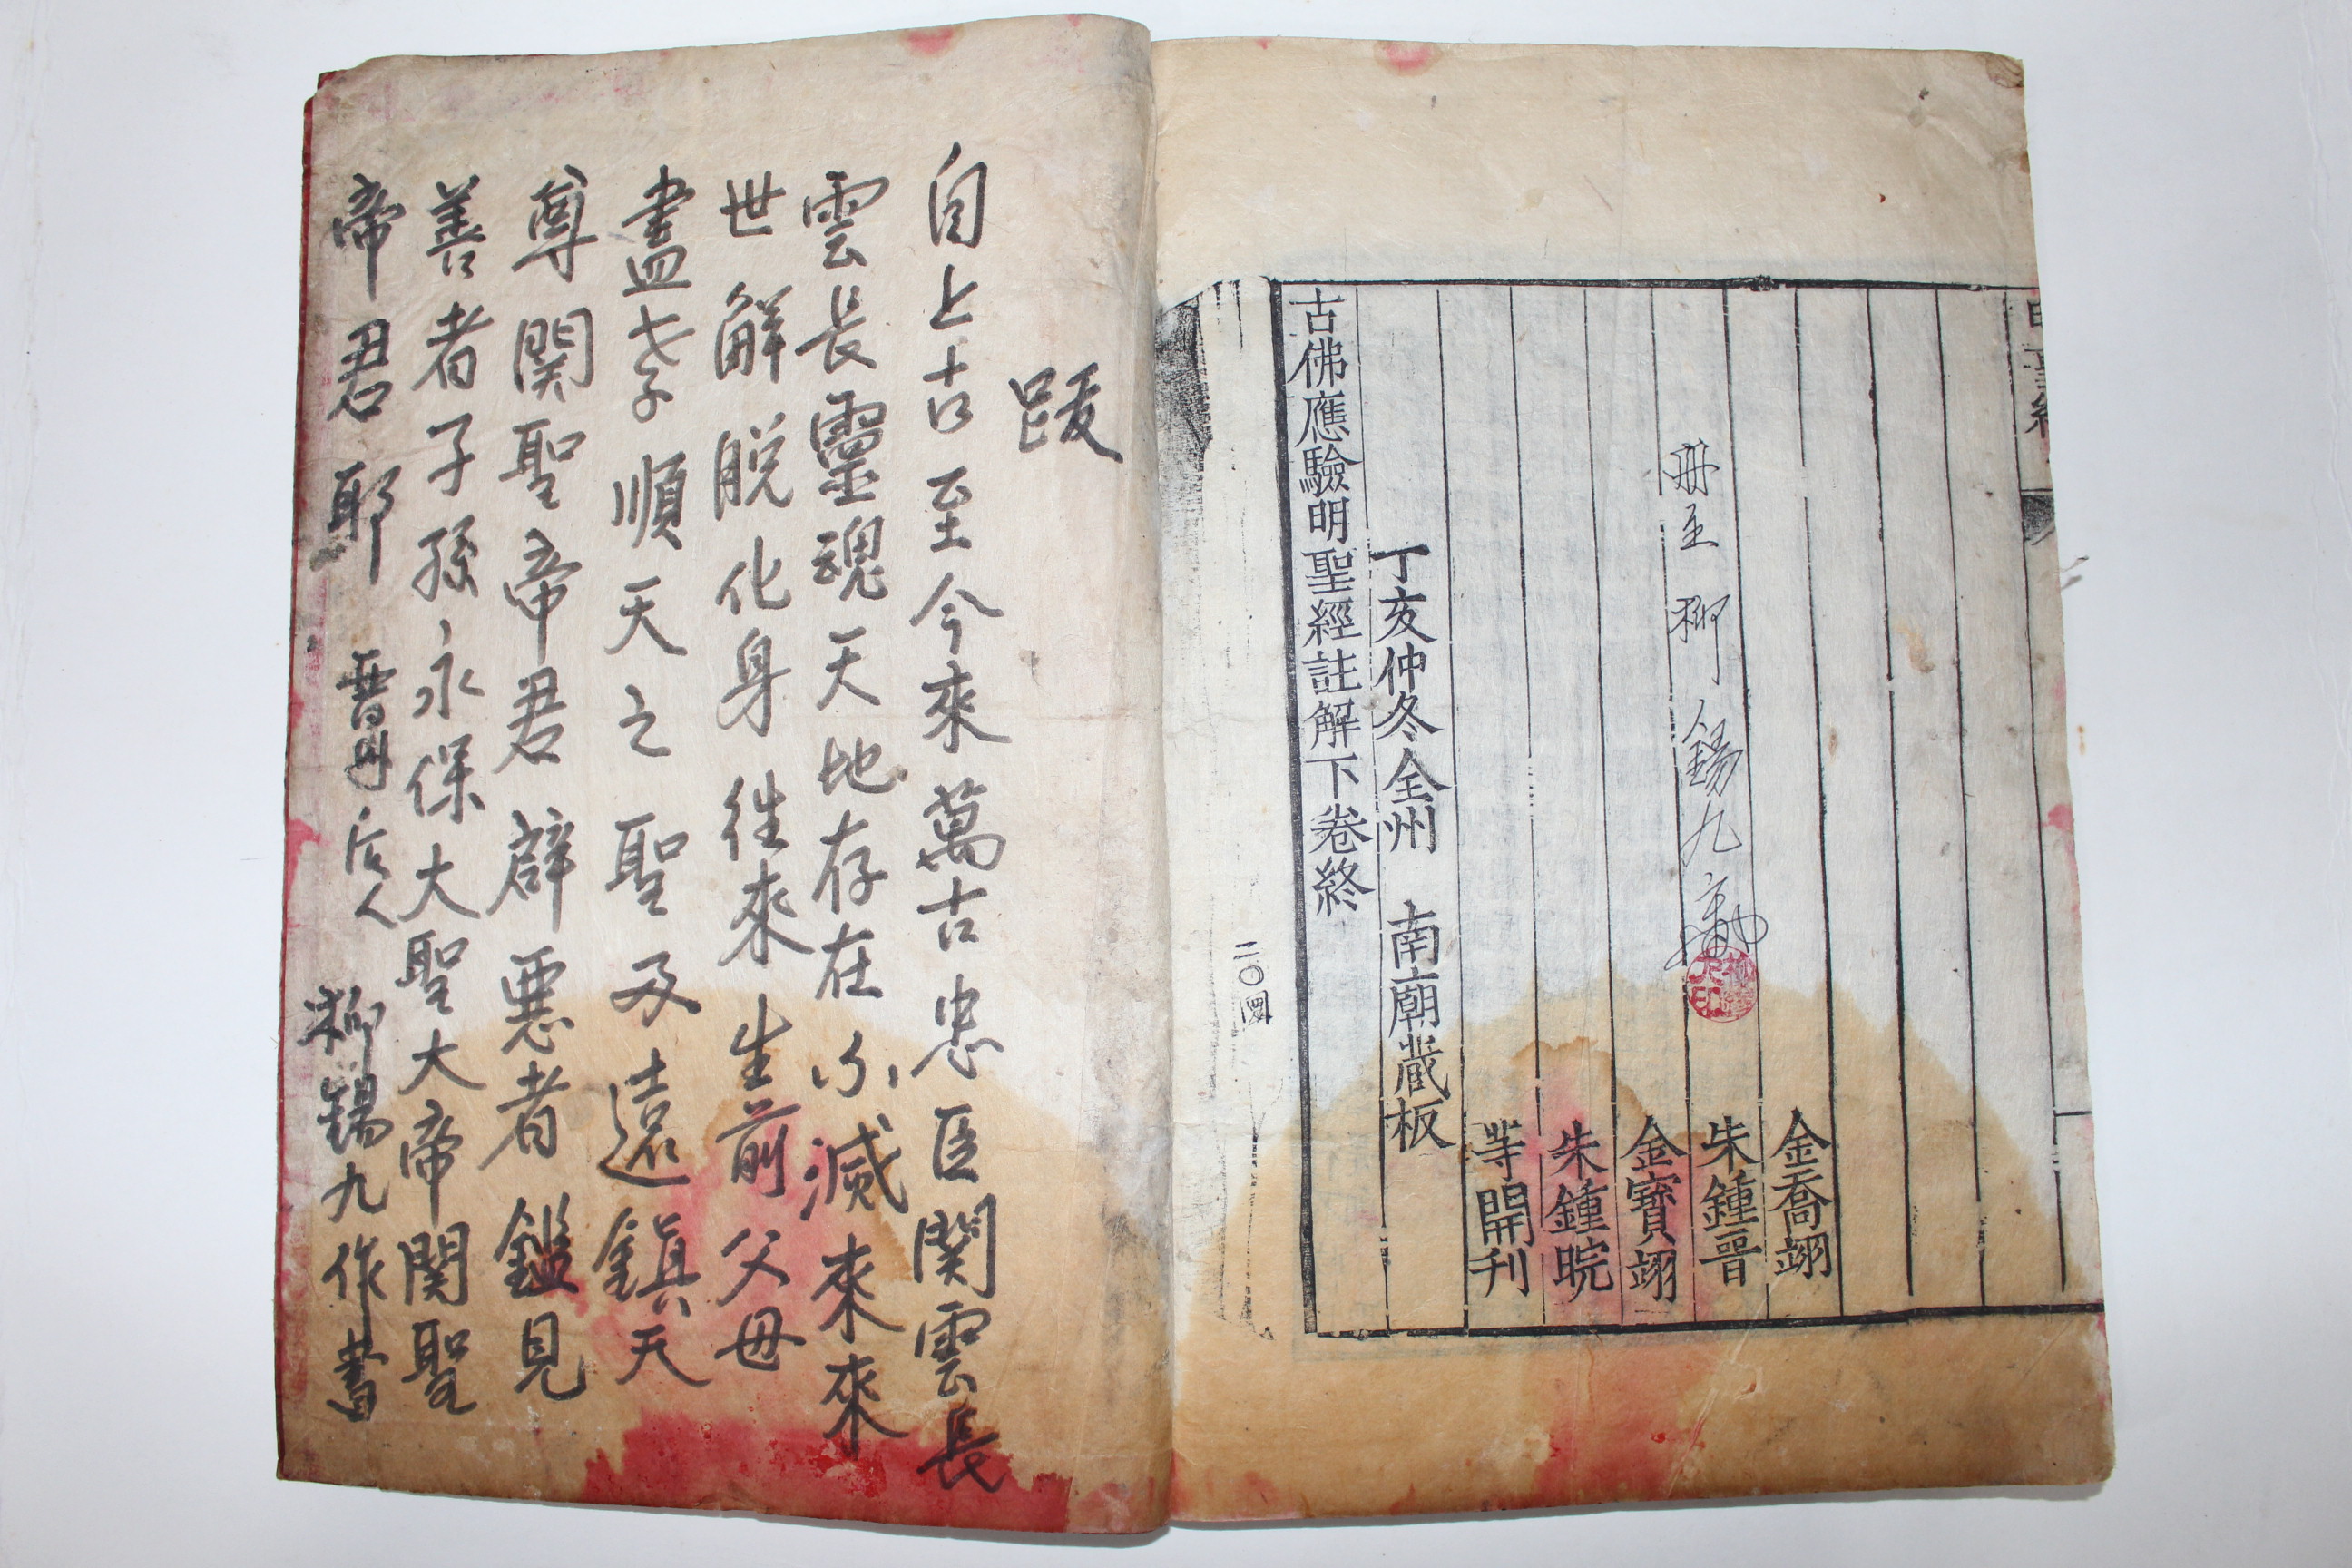 金喬翊
朱鍾晉
册主 柳錫九
金寶翊
朱鍾晥
等開刊
丁亥仲冬全州 南廟藏板
古佛應驗明聖經註解下卷終
二〇四
跋
自上古至今來萬古忠臣関雲長
雲長靈魂天地存在不滅來來
世解脱化身往來生前父母
盡孝順天之聖及遠鎮天
尊関聖帝君辟悪者鑑見
善者子孫永保大聖大帝関聖
帝君耶 晋州后人 柳錫九作書